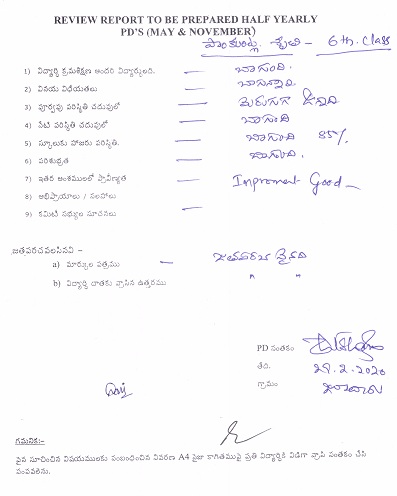 REVIEW REPORT TO BE PREPARED HALF YEARLY
PD'S (MAY & NOVEMBER)
6th Class
1) విద్యార్థి క్రమశిక్షణ అందరి విద్యార్థులది. — బాగుంది.
2) వినయ విధేయతలు — బాగున్నాయి.
3) పూర్వపు పరిస్థితి చదువులో — మెరుగుగ ఉన్నది
4) నేటి పరిస్థితి చదువులో — బాగుంది
5) స్కూలుకు హాజరు పరిస్థితి. — బాగుంది 85%.
6) పరిశుభ్రత — బాగుంది.
7) ఇతర అంశములలో ప్రావీణ్యత — Improment Good —
8) అభిప్రాయాలు / సలహాలు
9) కమిటీ సభ్యుల సూచనలు —
జతపరచవలసినవి –
a) మార్కుల పత్రము — జతపరచ నైనది
b) విద్యార్థి దాతకు వ్రాసిన ఉత్తరము " "
PD సంతకం
తేది. 29.2.2020
గ్రామం
గమనిక:-
పైన సూచించిన విషయములకు సంబంధించిన వివరణ A4 సైజు కాగితముపై ప్రతి విద్యార్థికి విడిగా వ్రాసి సంతకం చేసి
పంపవలెను.